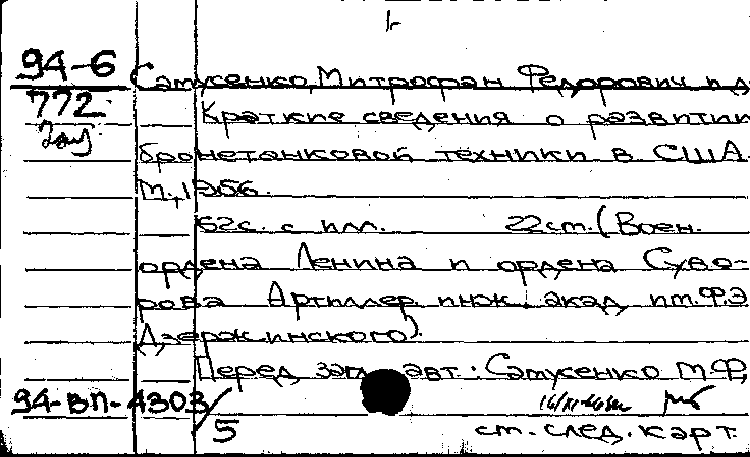 94-6 Сатусенко, Митрофан Федорович п.д
772 Краткие сведения о развитии
бронетанковой техники в США.
М., 1956.
62с. с илл. 22см. (Воен.
ордена Ленина и ордена Суво-
рова Артиллер. инж. акад им. Ф.Э.
Дзержинского).
Перед загл. авт.: Сатусенко М.Ф.
94-ВП-4303/5
см. след. карт.